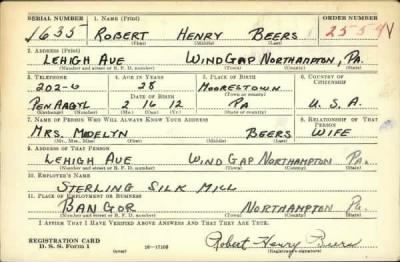 SERIAL NUMBER 1. NAME (Print) ORDER NUMBER
1635 ROBERT HENRY BEERS 2559
(First) (Middle) (Last)
2. ADDRESS (Print)
LEHIGH AVE WIND GAP NORTHAMPTON, PA.
(Number and street or R. F. D. number) (Town) (County) (State)
3. TELEPHONE 4. AGE IN YEARS 5. PLACE OF BIRTH 6. COUNTRY OF CITIZENSHIP
202-J 28 MOORESTOWN
DATE OF BIRTH (Town or county)
PEN ARGYL 2 16 12 PA U.S.A.
(Exchange) (Mo.) (Day) (Yr.) (State or country)
7. NAME OF PERSON WHO WILL ALWAYS KNOW YOUR ADDRESS 8. RELATIONSHIP OF THAT PERSON
MRS. MADELYN BEERS WIFE
(Mr., Mrs., Miss) (First) (Middle) (Last)
9. ADDRESS OF THAT PERSON
LEHIGH AVE WIND GAP NORTHAMPTON PA.
(Number and street or R. F. D. number) (Town) (County) (State)
10. EMPLOYER'S NAME
STERLING SILK MILL
11. PLACE OF EMPLOYMENT OR BUSINESS
BANGOR NORTHAMPTON PA.
(Number and street or R. F. D. number) (Town) (County) (State)
I AFFIRM THAT I HAVE VERIFIED ABOVE ANSWERS AND THAT THEY ARE TRUE.
REGISTRATION CARD
D. S. S. Form 1 (over) 16—17105 Robert Henry Beers
(Registrant's signature)